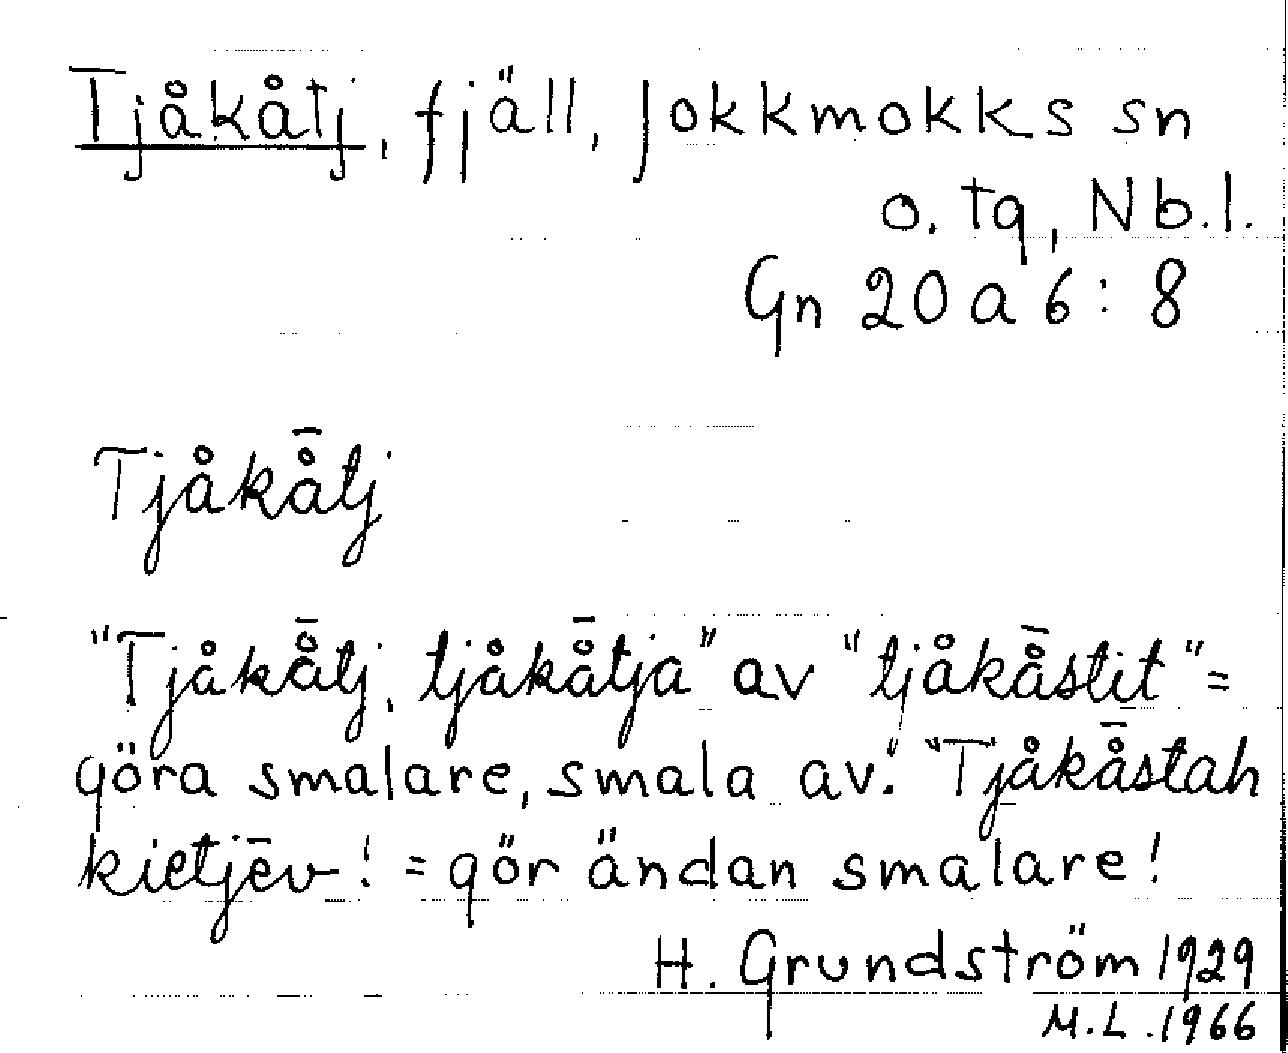 Tjåkåtj, fjäll, Jokkmokks sn
o. tg, Nb.l.
Gn 20 a 6:8
Tjåkå̄tj
"Tjåkå̄tj, tjåkå̄tja" av "tjåkå̄stit" =
göra smalare, smala av." "Tjåkå̄stah
kietjēv! = gör ändan smalare!
H. Grundström 1929
M.L. 1966